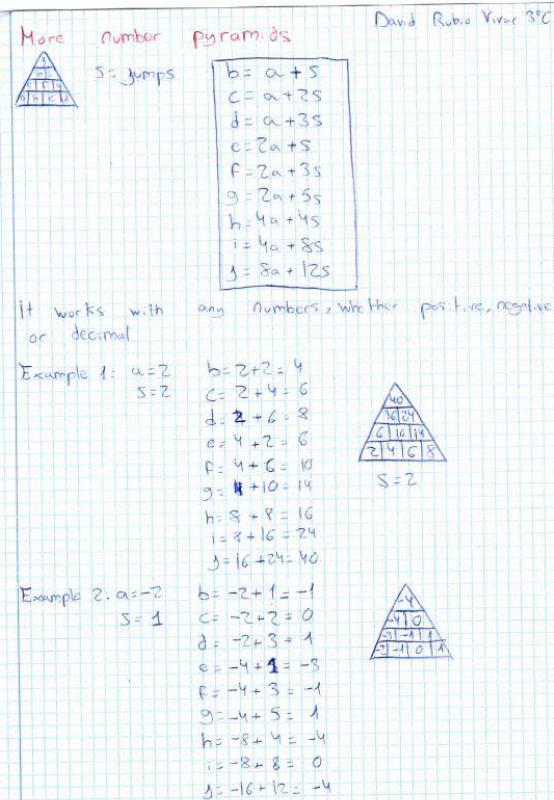 David Rubio Vivar 3ºC
More number pyramids
S = jumps
b = a + s
c = a + 2s
d = a + 3s
e = 2a + s
f = 2a + 3s
g = 2a + 5s
h = 4a + 4s
i = 4a + 8s
j = 8a + 12s
it works with any numbers, whether positive, negative
or decimal
Example 1: a = 2
S = 2
b = 2 + 2 = 4
c = 2 + 4 = 6
d = 2 + 6 = 8
e = 4 + 2 = 6
f = 4 + 6 = 10
g = 4 + 10 = 14
h = 8 + 8 = 16
i = 8 + 16 = 24
j = 16 + 24 = 40
40
16 24
6 10 14
2 4 6 8
S = 2
Example 2: a = -2
S = 1
b = -2 + 1 = -1
c = -2 + 2 = 0
d = -2 + 3 = 1
e = -4 + 1 = -3
f = -4 + 3 = -1
g = -4 + 5 = 1
h = -8 + 4 = -4
i = -8 + 8 = 0
j = -16 + 12 = -4
-4
-4 0
-3 -1 1
-2 -1 0 1